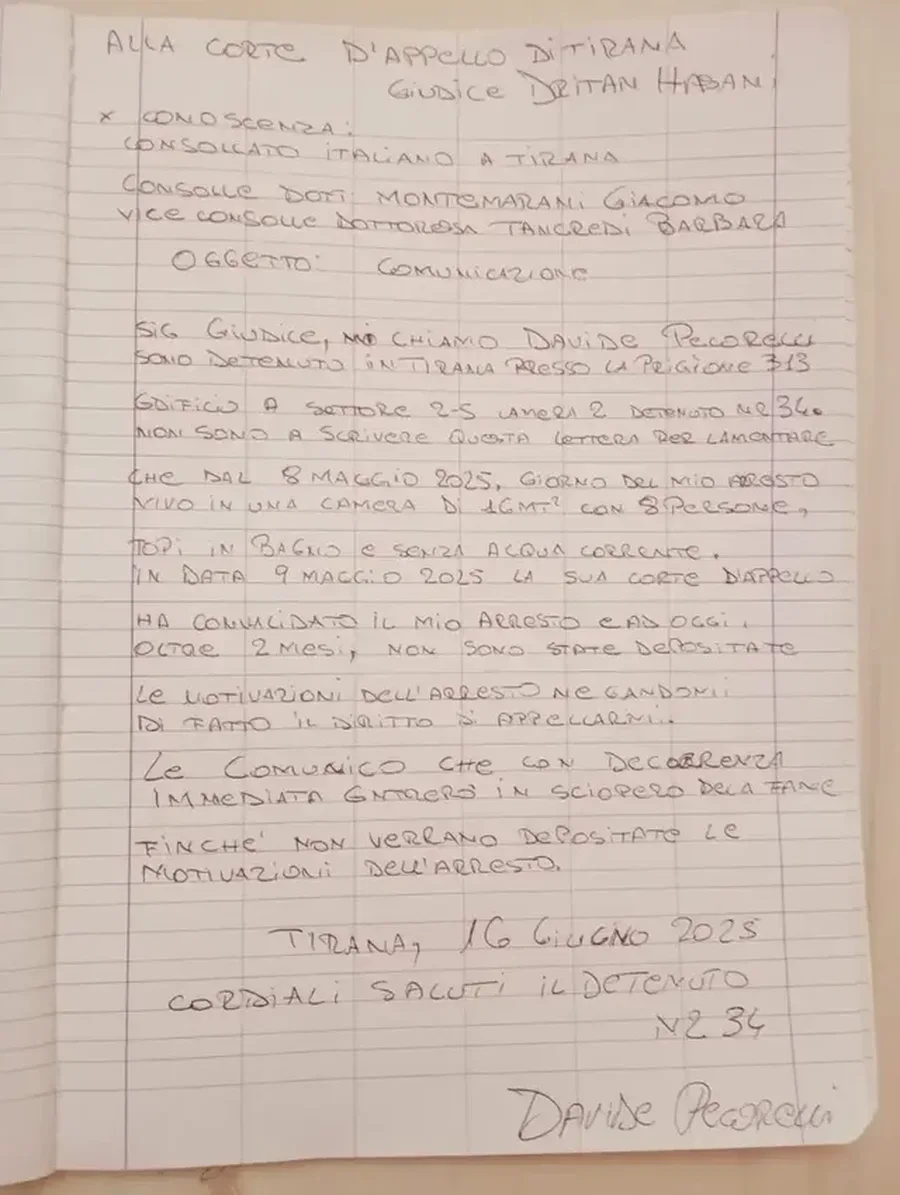 ALLA CORTE D'APPELLO DI TIRANA
GIUDICE DRITAN HASANI
X CONOSCENZA:
CONSOLLATO ITALIANO A TIRANA
CONSOLLE DOTT. MONTEMARANI GIACOMO
VICE CONSOLLE DOTTORESSA TANCREDI BARBARA
OGGETTO: COMUNICAZIONE
SIG GIUDICE, MI CHIAMO DAVIDE PECORELLI
SONO DETENUTO IN TIRANA PRESSO LA PRIGIONE 313
EDIFICIO A SETTORE 2-5 CAMERA 2 DETENUTO NR 34.
NON SONO A SCRIVERE QUESTA LETTERA PER LAMENTARE
CHE DAL 8 MAGGIO 2025, GIORNO DEL MIO ARRESTO
VIVO IN UNA CAMERA DI 16MT² CON 8 PERSONE,
TOPI IN BAGNO E SENZA ACQUA CORRENTE.
IN DATA 9 MAGGIO 2025 LA SUA CORTE D'APPELLO
HA CONVALIDATO IL MIO ARRESTO E AD OGGI,
OLTRE 2 MESI, NON SONO STATE DEPOSITATE
LE MOTIVAZIONI DELL'ARRESTO NEGANDOMI
DI FATTO IL DIRITTO DI APPELLARMI.
LE COMUNICO CHE CON DECORRENZA
IMMEDIATA ENTRERÒ IN SCIOPERO DELA FAME
FINCHE' NON VERRANO DEPOSITATE LE
MOTIVAZIONI DELL'ARRESTO.
TIRANA, 16 GIUGNO 2025
CORDIALI SALUTI IL DETENUTO
NR 34
DAVIDE PECORELLI